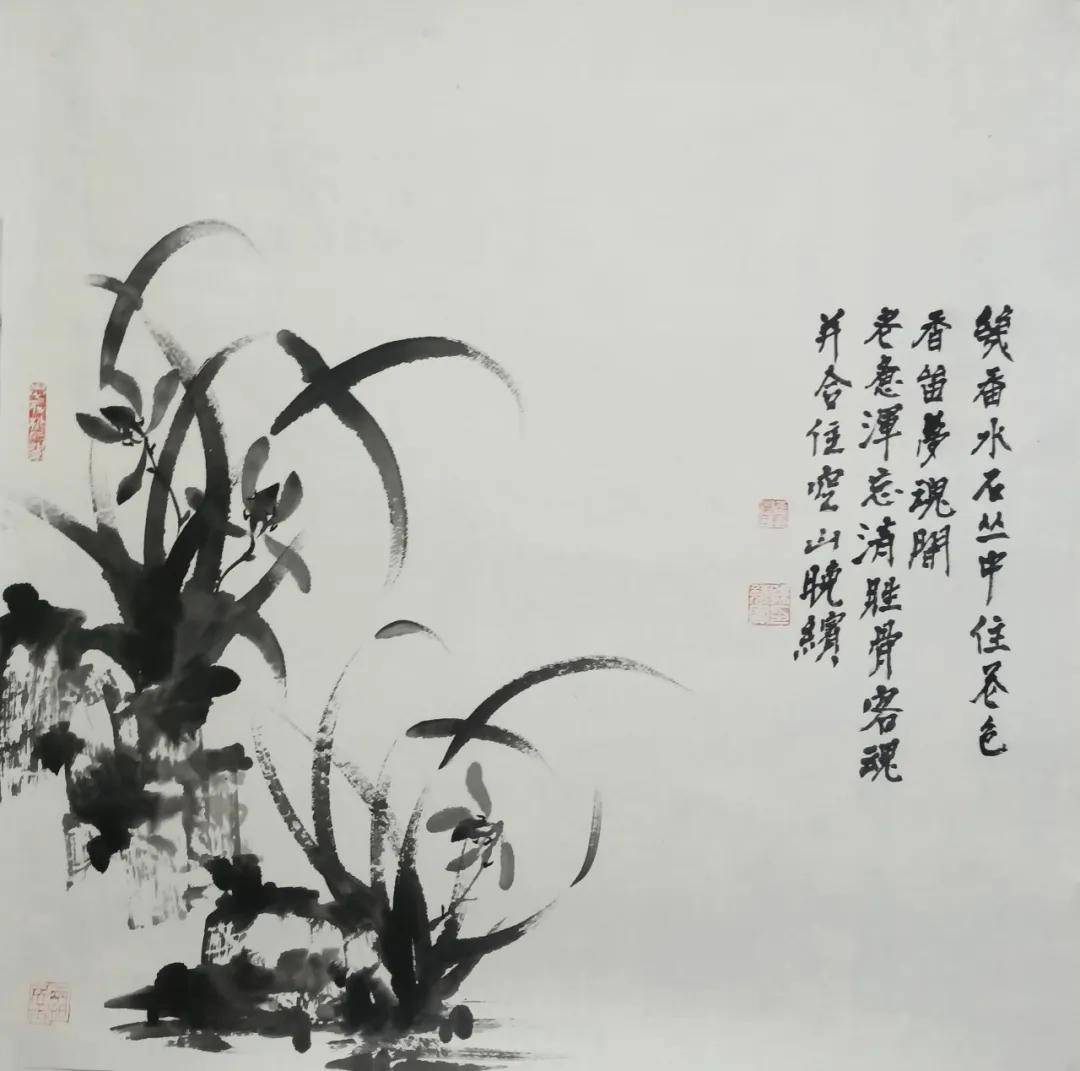 幾番水石丛中住花色
香笛夢魂閒
老意渾忘清胜骨客魂
并合住空山晚繽